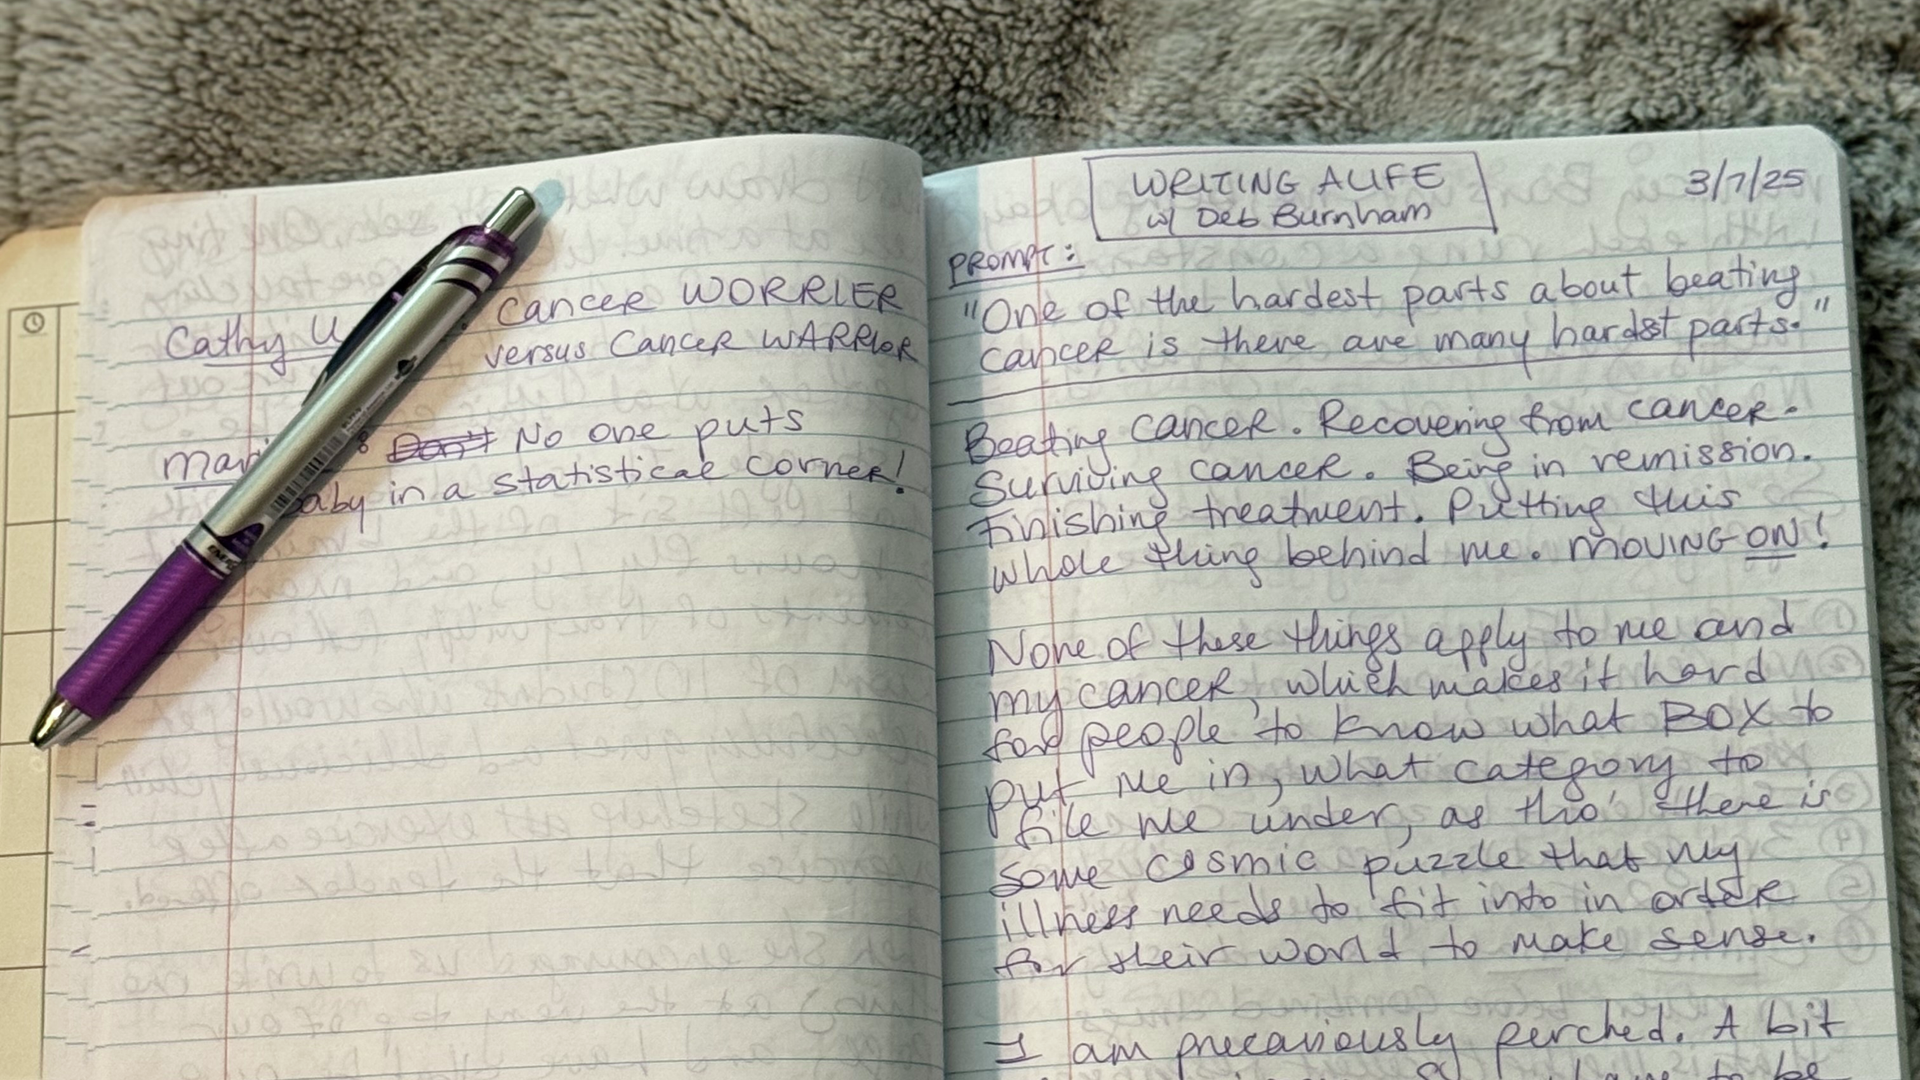 Cathy U
: Cancer WORRIER
versus Cancer WARRIOR
mari : Don't No one puts
baby in a statistical corner!
WRITING A LIFE
w/ Deb Burnham
3/7/25
PROMPT:
"One of the hardest parts about beating
cancer is there are many hardest parts."
Beating cancer. Recovering from cancer.
Surviving cancer. Being in remission.
Finishing treatment. Putting this
whole thing behind me. MOVING ON!
None of these things apply to me and
my cancer, which makes it hard
for people to know what BOX to
put me in, what category to
file me under, as tho' there is
some cosmic puzzle that my
illness needs to fit into in order
for their world to make sense.
I am precariously perched. A bit
to be